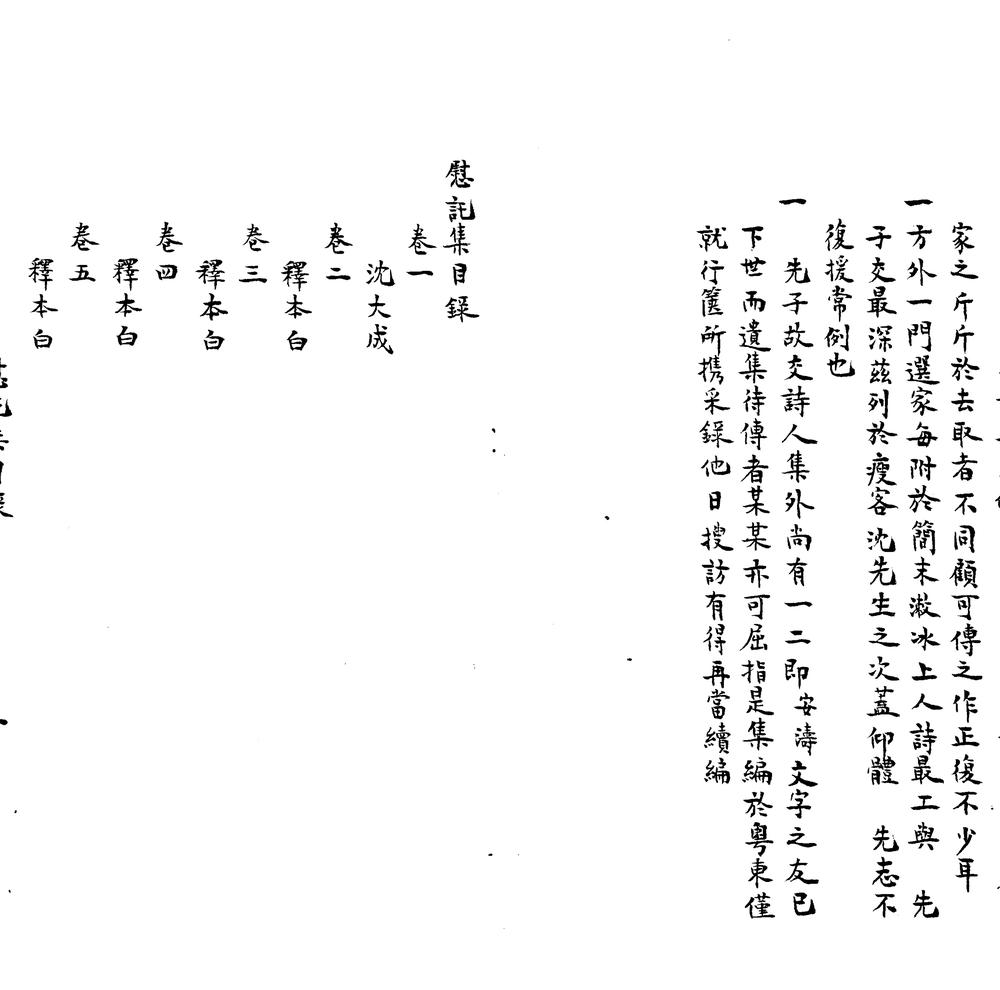 家之斤斤於去取者不同顧可傳之作正復不少耳
一方外一門選家每附於簡末漱冰上人詩最工與　先
子交最深茲列於瘦客沈先生之次蓋仰體　先志不
復援常例也
一　先子故交詩人集外尚有一二即安濤文字之友已
下世而遺集待傳者某某亦可屈指是集編於粵東僅
就行篋所攜采錄他日搜訪有得再當續編
慰託集目錄
卷一
沈大成
卷二
釋本白
卷三
釋本白
卷四
釋本白
卷五
釋本白